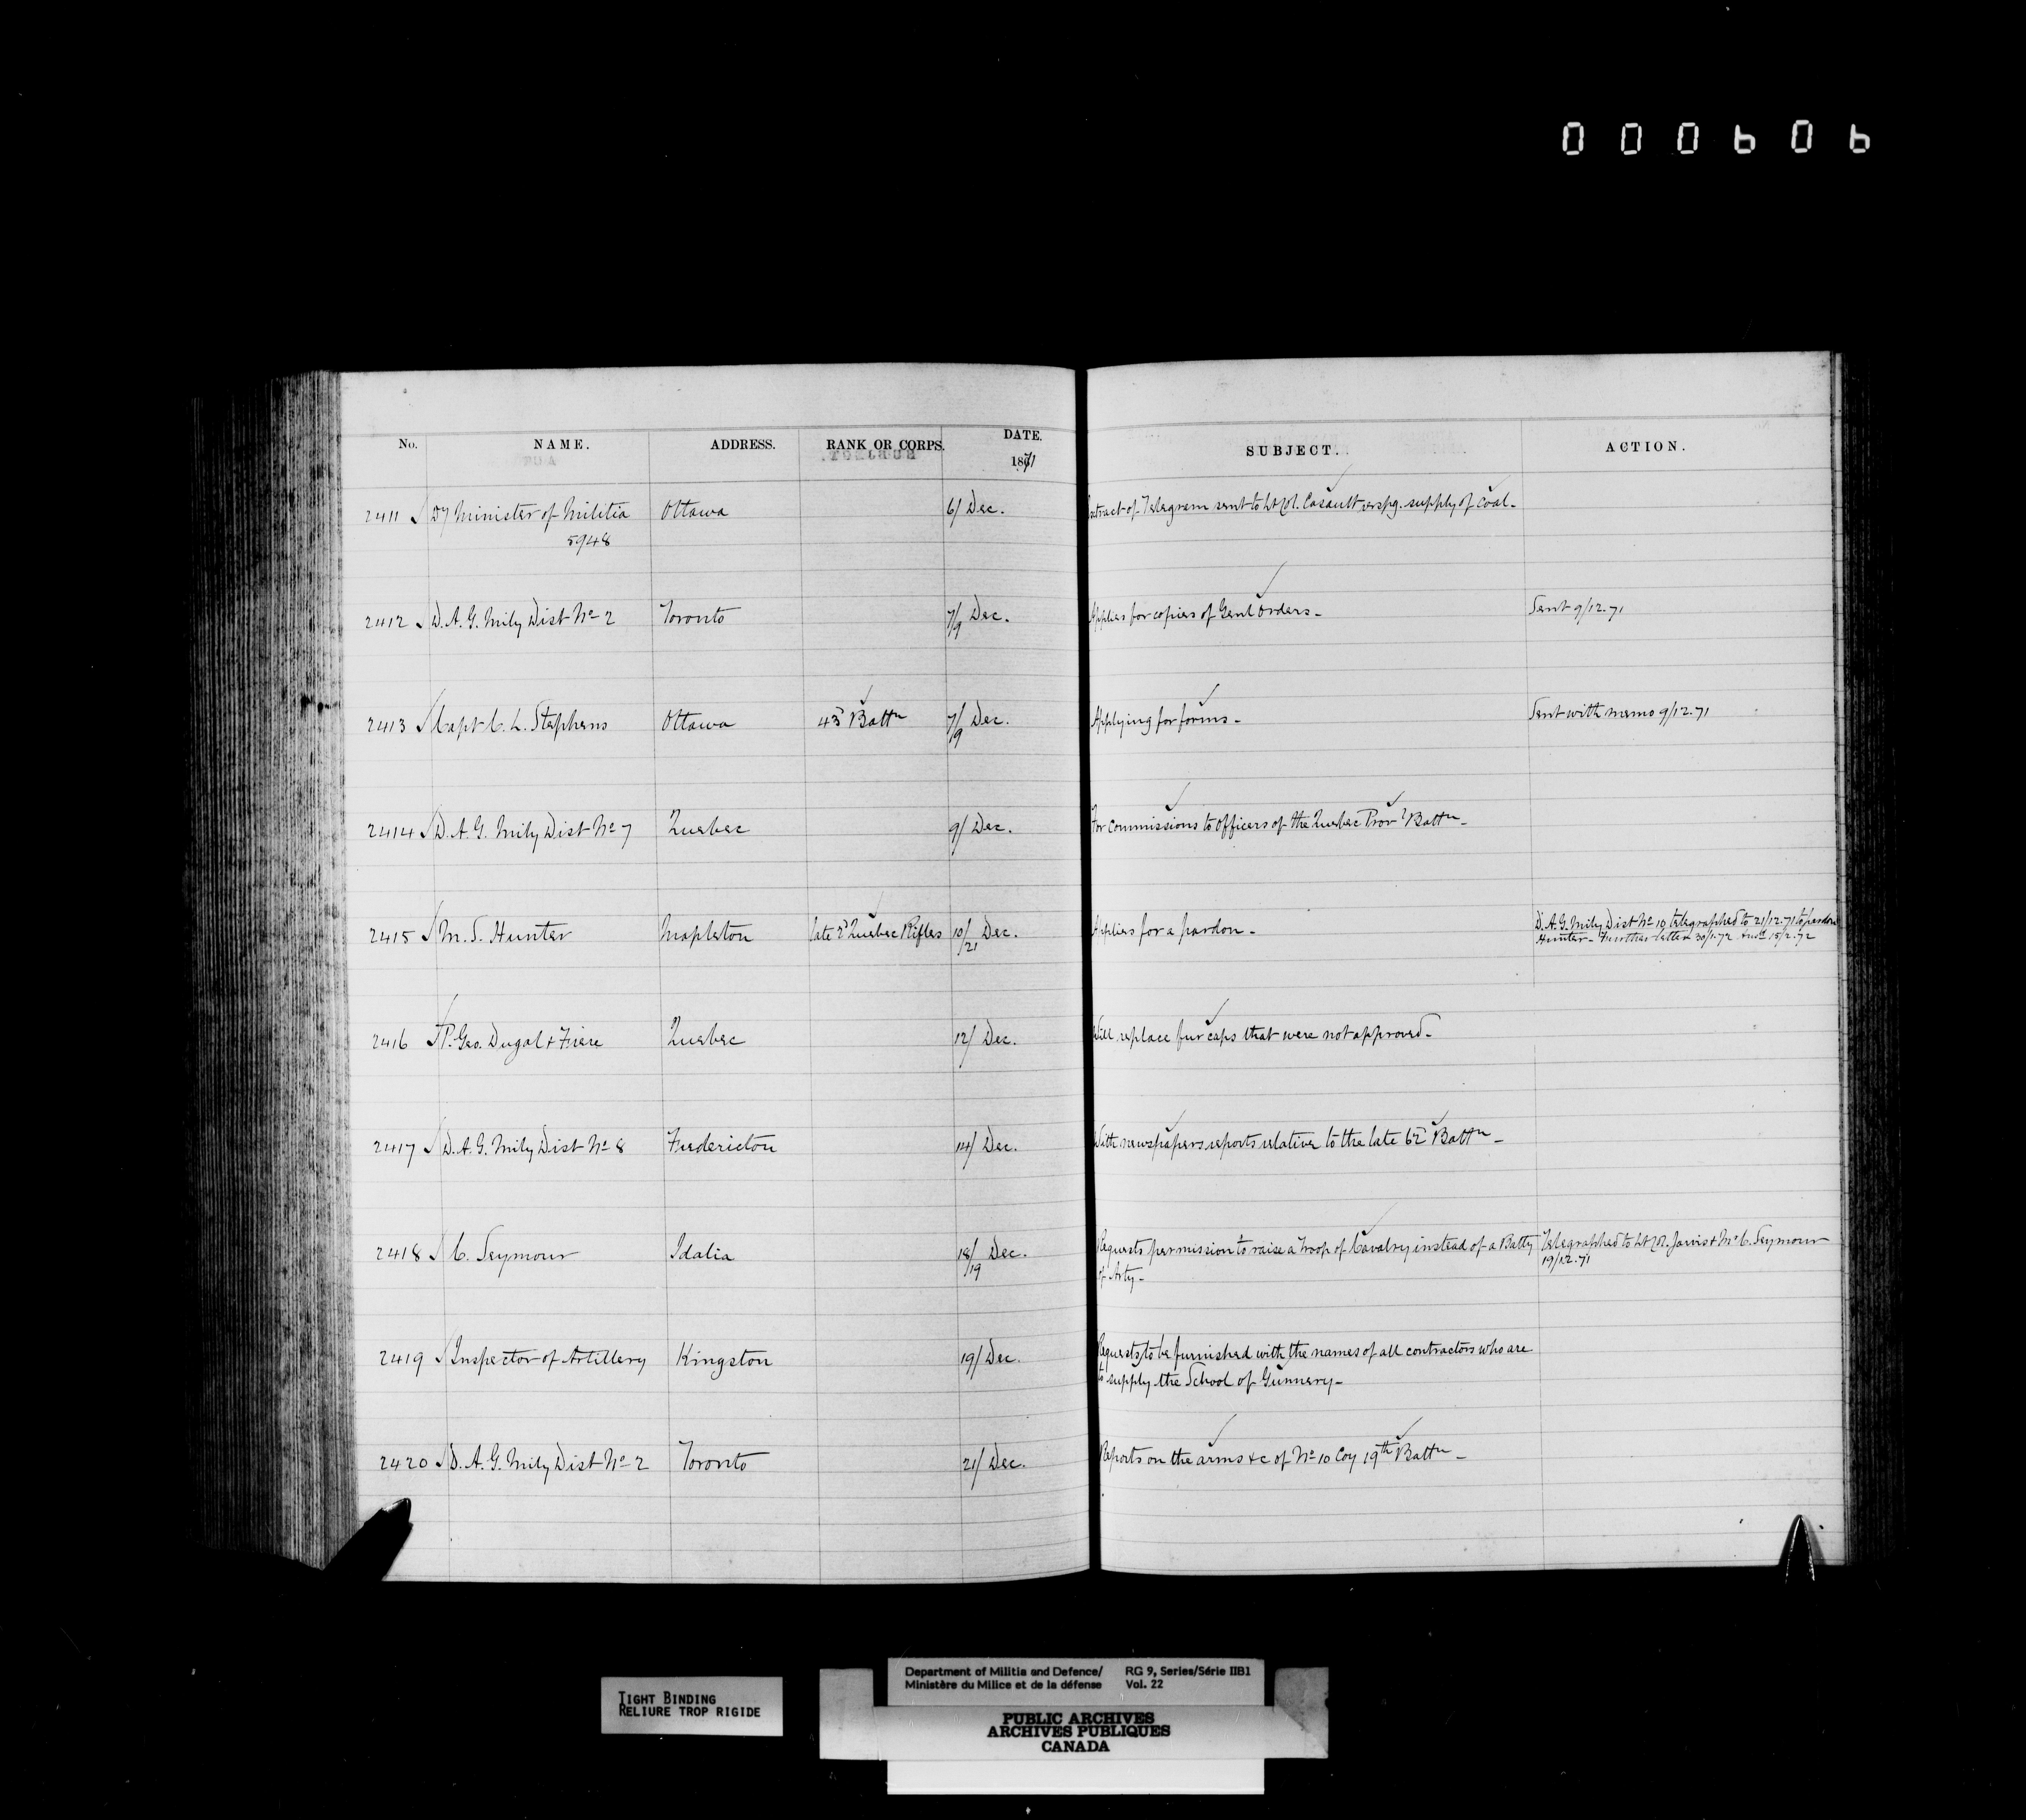 000606
No. NAME. ADDRESS. RANK OR CORPS. DATE. 1871 SUBJECT. ACTION.
2411 Dy Minister of Militia Ottawa 6/ Dec. Extract of Telegram sent to Lt Col. Casault respg. supply of coal.
5948
2412 D. A. G. Mily Dist No 2 Toronto 7/9 Dec. Applies for copies of Genl Orders. Sent 9/12.71
2413 Capt C. L. Stephens Ottawa 43d Battn 7/9 Dec. Applying for forms. Sent with memo 9/12.71
2414 D. A. G. Mily Dist No 7 Quebec 9/ Dec. For commissions to officers of the Quebec Provl Battn.
2415 M. S. Hunter Mapleton late 2d Quebec Rifles 10/21 Dec. Applies for a pardon. D. A. G. Mily Dist No 10 telegraphed to 21/12.71 to pardon
Hunter. Further letter 30/1.72 15/2.72
2416 P. Geo. Dugal & Frere Quebec 12/ Dec. Will replace fur caps that were not approved.
2417 D. A. G. Mily Dist No 8 Fredericton 14/ Dec. With newspapers reports relative to the late 62d Battn.
2418 C. Seymour Idalia 18/19 Dec. Requests permission to raise a Troop of Cavalry instead of a Batty Telegraphed to Lt Col. Jarvis & Mr C. Seymour
of Arty. 19/12.71
2419 Inspector of Artillery Kingston 19/ Dec. Requests to be furnished with the names of all contractors who are
to supply the School of Gunnery.
2420 D. A. G. Mily Dist No 2 Toronto 21/ Dec. Reports on the arms &c of No 10 Coy 19th Battn.
TIGHT BINDING
RELIURE TROP RIGIDE
Department of Militia and Defence/ RG 9, Series/Série IIB1
Ministère du Milice et de la défense Vol. 22
PUBLIC ARCHIVES
ARCHIVES PUBLIQUES
CANADA